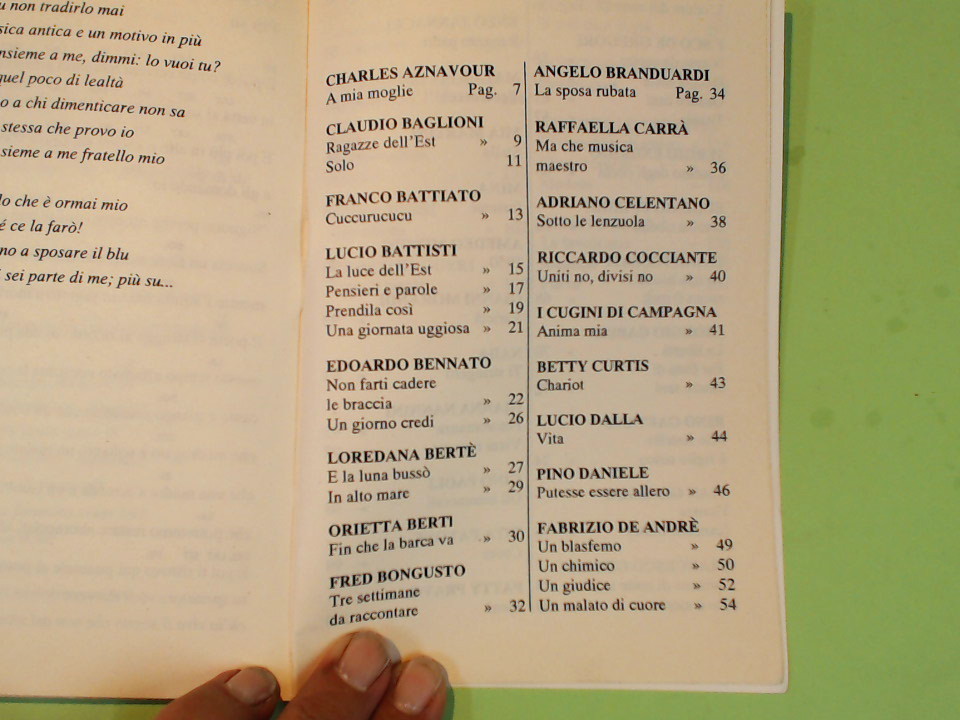 u non tradirlo mai
sica antica e un motivo in più
nsieme a me, dimmi: lo vuoi tu?
quel poco di lealtà
o a chi dimenticare non sa
stessa che provo io
sieme a me fratello mio
lo che è ormai mio
é ce la farò!
no a sposare il blu
sei parte di me; più su...
CHARLES AZNAVOUR
A mia moglie Pag. 7
CLAUDIO BAGLIONI
Ragazze dell'Est » 9
Solo 11
FRANCO BATTIATO
Cuccurucucu » 13
LUCIO BATTISTI
La luce dell'Est » 15
Pensieri e parole » 17
Prendila così » 19
Una giornata uggiosa » 21
EDOARDO BENNATO
Non farti cadere
le braccia » 22
Un giorno credi » 26
LOREDANA BERTÈ
E la luna bussò » 27
In alto mare » 29
ORIETTA BERTI
Fin che la barca va » 30
FRED BONGUSTO
Tre settimane
da raccontare » 32
ANGELO BRANDUARDI
La sposa rubata Pag. 34
RAFFAELLA CARRÀ
Ma che musica
maestro » 36
ADRIANO CELENTANO
Sotto le lenzuola » 38
RICCARDO COCCIANTE
Uniti no, divisi no » 40
I CUGINI DI CAMPAGNA
Anima mia » 41
BETTY CURTIS
Chariot » 43
LUCIO DALLA
Vita » 44
PINO DANIELE
Putesse essere allero » 46
FABRIZIO DE ANDRÈ
Un blasfemo » 49
Un chimico » 50
Un giudice » 52
Un malato di cuore » 54